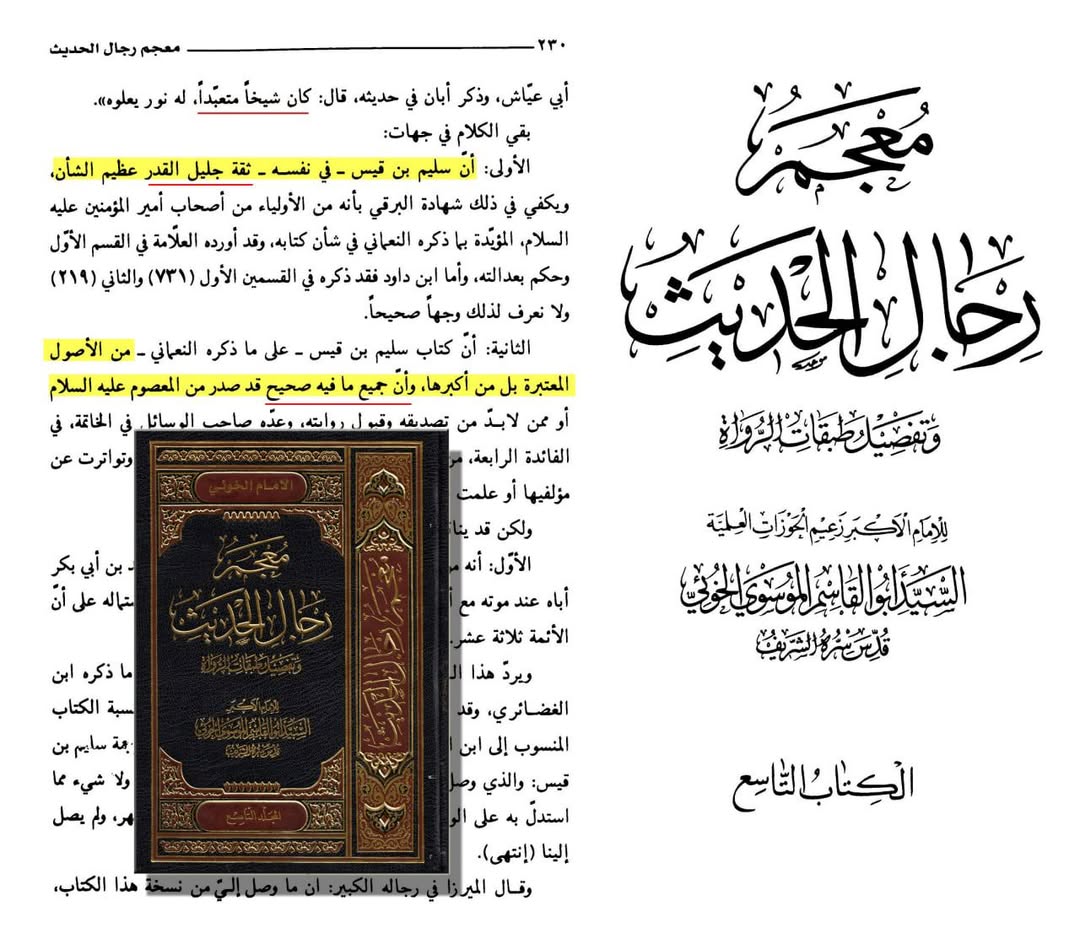 معجم رجال الحديث ٢٣٠
أبي عيّاش، وذكر أبان في حديثه، قال: كان شيخاً متعبّداً، له نور يعلوه».
بقي الكلام في جهات:
الأولى: أنّ سليم بن قيس ـ في نفسه ـ ثقة جليل القدر عظيم الشأن،
ويكفي في ذلك شهادة البرقي بأنه من الأولياء من أصحاب أمير المؤمنين عليه
السلام، المؤيّدة بما ذكره النعماني في شأن كتابه، وقد أورده العلّامة في القسم الأوّل
وحكم بعدالته، وأما ابن داود فقد ذكره في القسمين الأول (٧٣١) والثاني (٢١٩)
ولا نعرف لذلك وجهاً صحيحاً.
الثانية: أنّ كتاب سليم بن قيس ـ على ما ذكره النعماني ـ من الأصول
المعتبرة بل من أكبرها، وأنّ جميع ما فيه صحيح قد صدر من المعصوم عليه السلام
أو ممن لابدّ من تصديقه وقبول روايته، وعدّه صاحب الوسائل في الخاتمة، في
الفائدة الرابعة، وتواترت عن
مؤلفيها أو علمت
ولكن قد
الأوّل: أنه بن أبي بكر
أباه عند موته مع على أنّ
الأئمة ثلاثة عشر.
ويردّ هذا ما ذكره ابن
الغضائري، وقد الكتاب
المنسوب إلى ابن سليم بن
قيس: والذي ولا شيء مما
استدلّ به على ولم يصل
إلينا (إنتهى).
وقال الميرزا في رجاله الكبير: ان ما وصل إليّ من نسخة هذا الكتاب،
الإمام الخوئي
معجم
رجال الحديث
وتفصيل طبقات الرواة
للإمام الأكبر
السيد أبو القاسم الموسوي الخوئي
قدس سره الشريف
المجلد التاسع
معجم رجال الحديث
معجم
رجال الحديث
وتفصيل طبقات الرواة
للإمام الأكبر زعيم الحوزات العلمية
السيد أبو القاسم الموسوي الخوئي
قدس سره الشريف
الكتاب التاسع